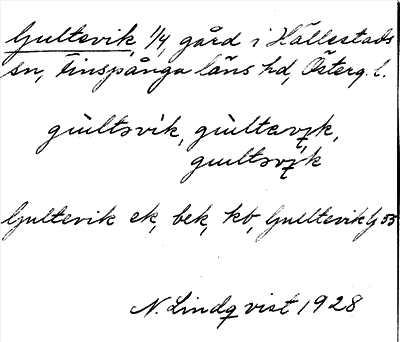 Gultevik, 1/4, gård i Hällestads
sn, Finspånga läns hd, Österg. l.
gùltsvi̇̀k, gùltavik,
gultsvik
Gultevik ek, bek, kb, Gulltevik Gj 55
N. Lindqvist 1928